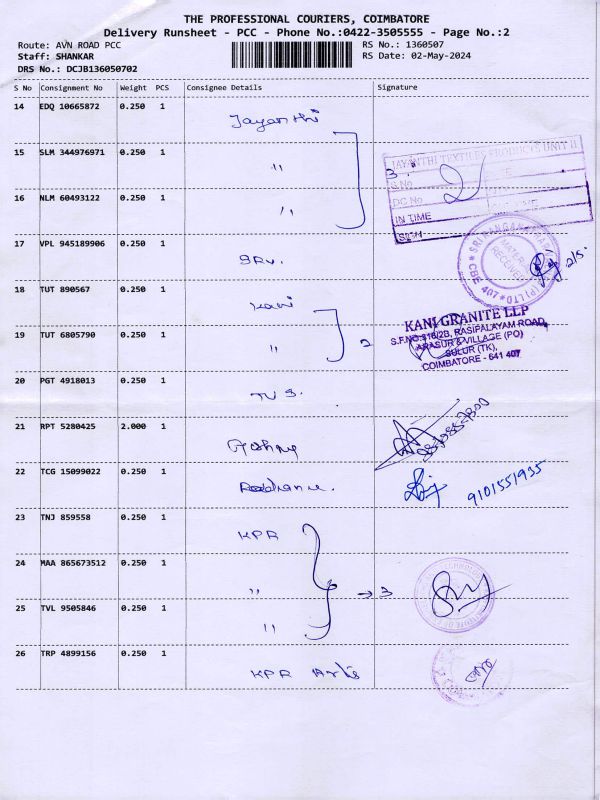 THE PROFESSIONAL COURIERS, COIMBATORE
Delivery Runsheet - PCC - Phone No.:0422-3505555 - Page No.:2
Route: AVN ROAD PCC RS No.: 1360507
Staff: SHANKAR RS Date: 02-May-2024
DRS No.: DCJB136050702
S No Consignment No Weight PCS Consignee Details Signature
14 EDQ 10665872 0.250 1 Jayanthi
JAYANTHI TEXTILES PRODUCTS UNIT II
15 SLM 344976971 0.250 1 "
3.
S.No
DC No
16 NLM 60493122 0.250 1 "
IN TIME
SIGN
17 VPL 945189906 0.250 1 SRV.
MATERIAL RECEIVED
CBE 407
2/5
18 TUT 890567 0.250 1 Kani
KANI GRANITE LLP
S.F.NO:316/2B, RASIPALAYAM ROAD,
19 TUT 6805790 0.250 1 " 2
ARASUR & VILLAGE (PO)
SULUR (TK),
COIMBATORE - 641 407
20 PGT 4918013 0.250 1 TVS.
21 RPT 5280425 2.000 1
22 TCG 15099022 0.250 1 Raddiance.
9101551935
23 TNJ 859558 0.250 1 KPR
24 MAA 865673512 0.250 1 " → 3
25 TVL 9505846 0.250 1 "
26 TRP 4899156 0.250 1 KPR Arts